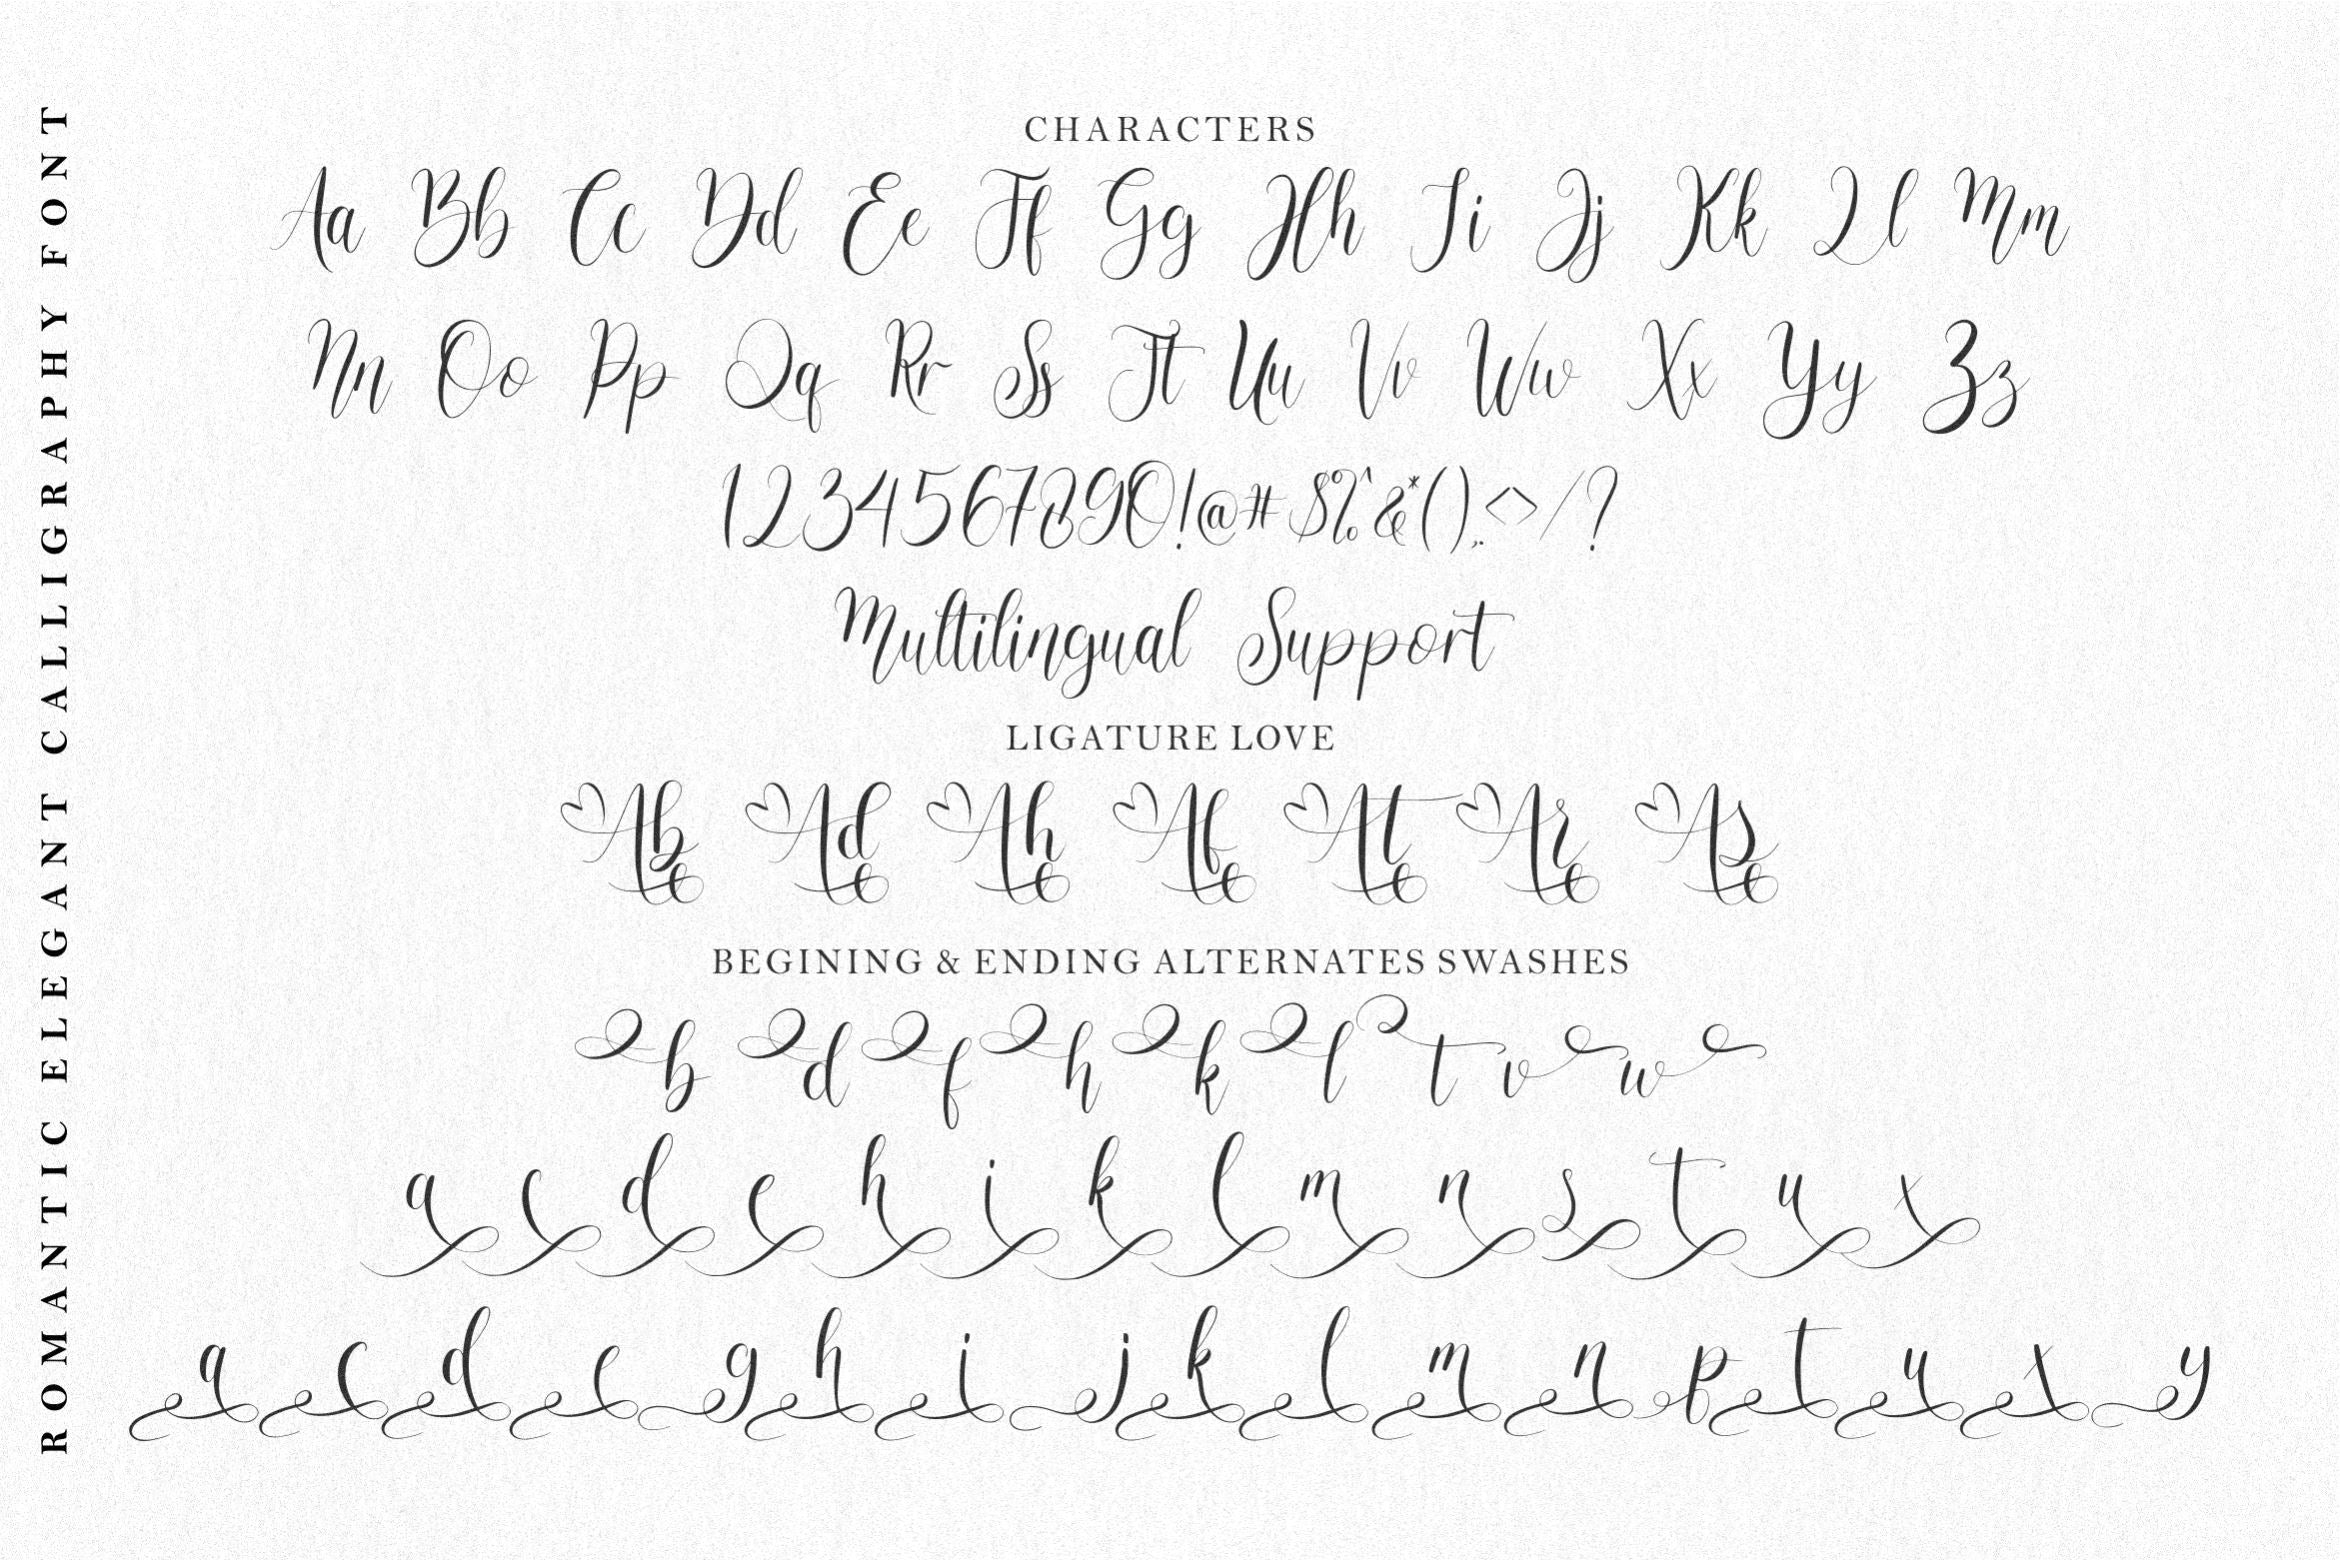 ROMANTIC ELEGANT CALLIGRAPHY FONT
CHARACTERS
Aa Bb Cc Dd Ee Ff Gg Hh Ii Jj Kk Ll Mm
Nn Oo Pp Qq Rr Ss Tt Uu Vv Ww Xx Yy Zz
1234567890!@#$%^&*(),.<>/?
Multilingual Support
LIGATURE LOVE
Ab Ad Ah Af At Ar As
BEGINING & ENDING ALTERNATES SWASHES
b d f h k l t v w
a c d e h i k l m n s t u x
a c d e g h i j k l m n p t u x y